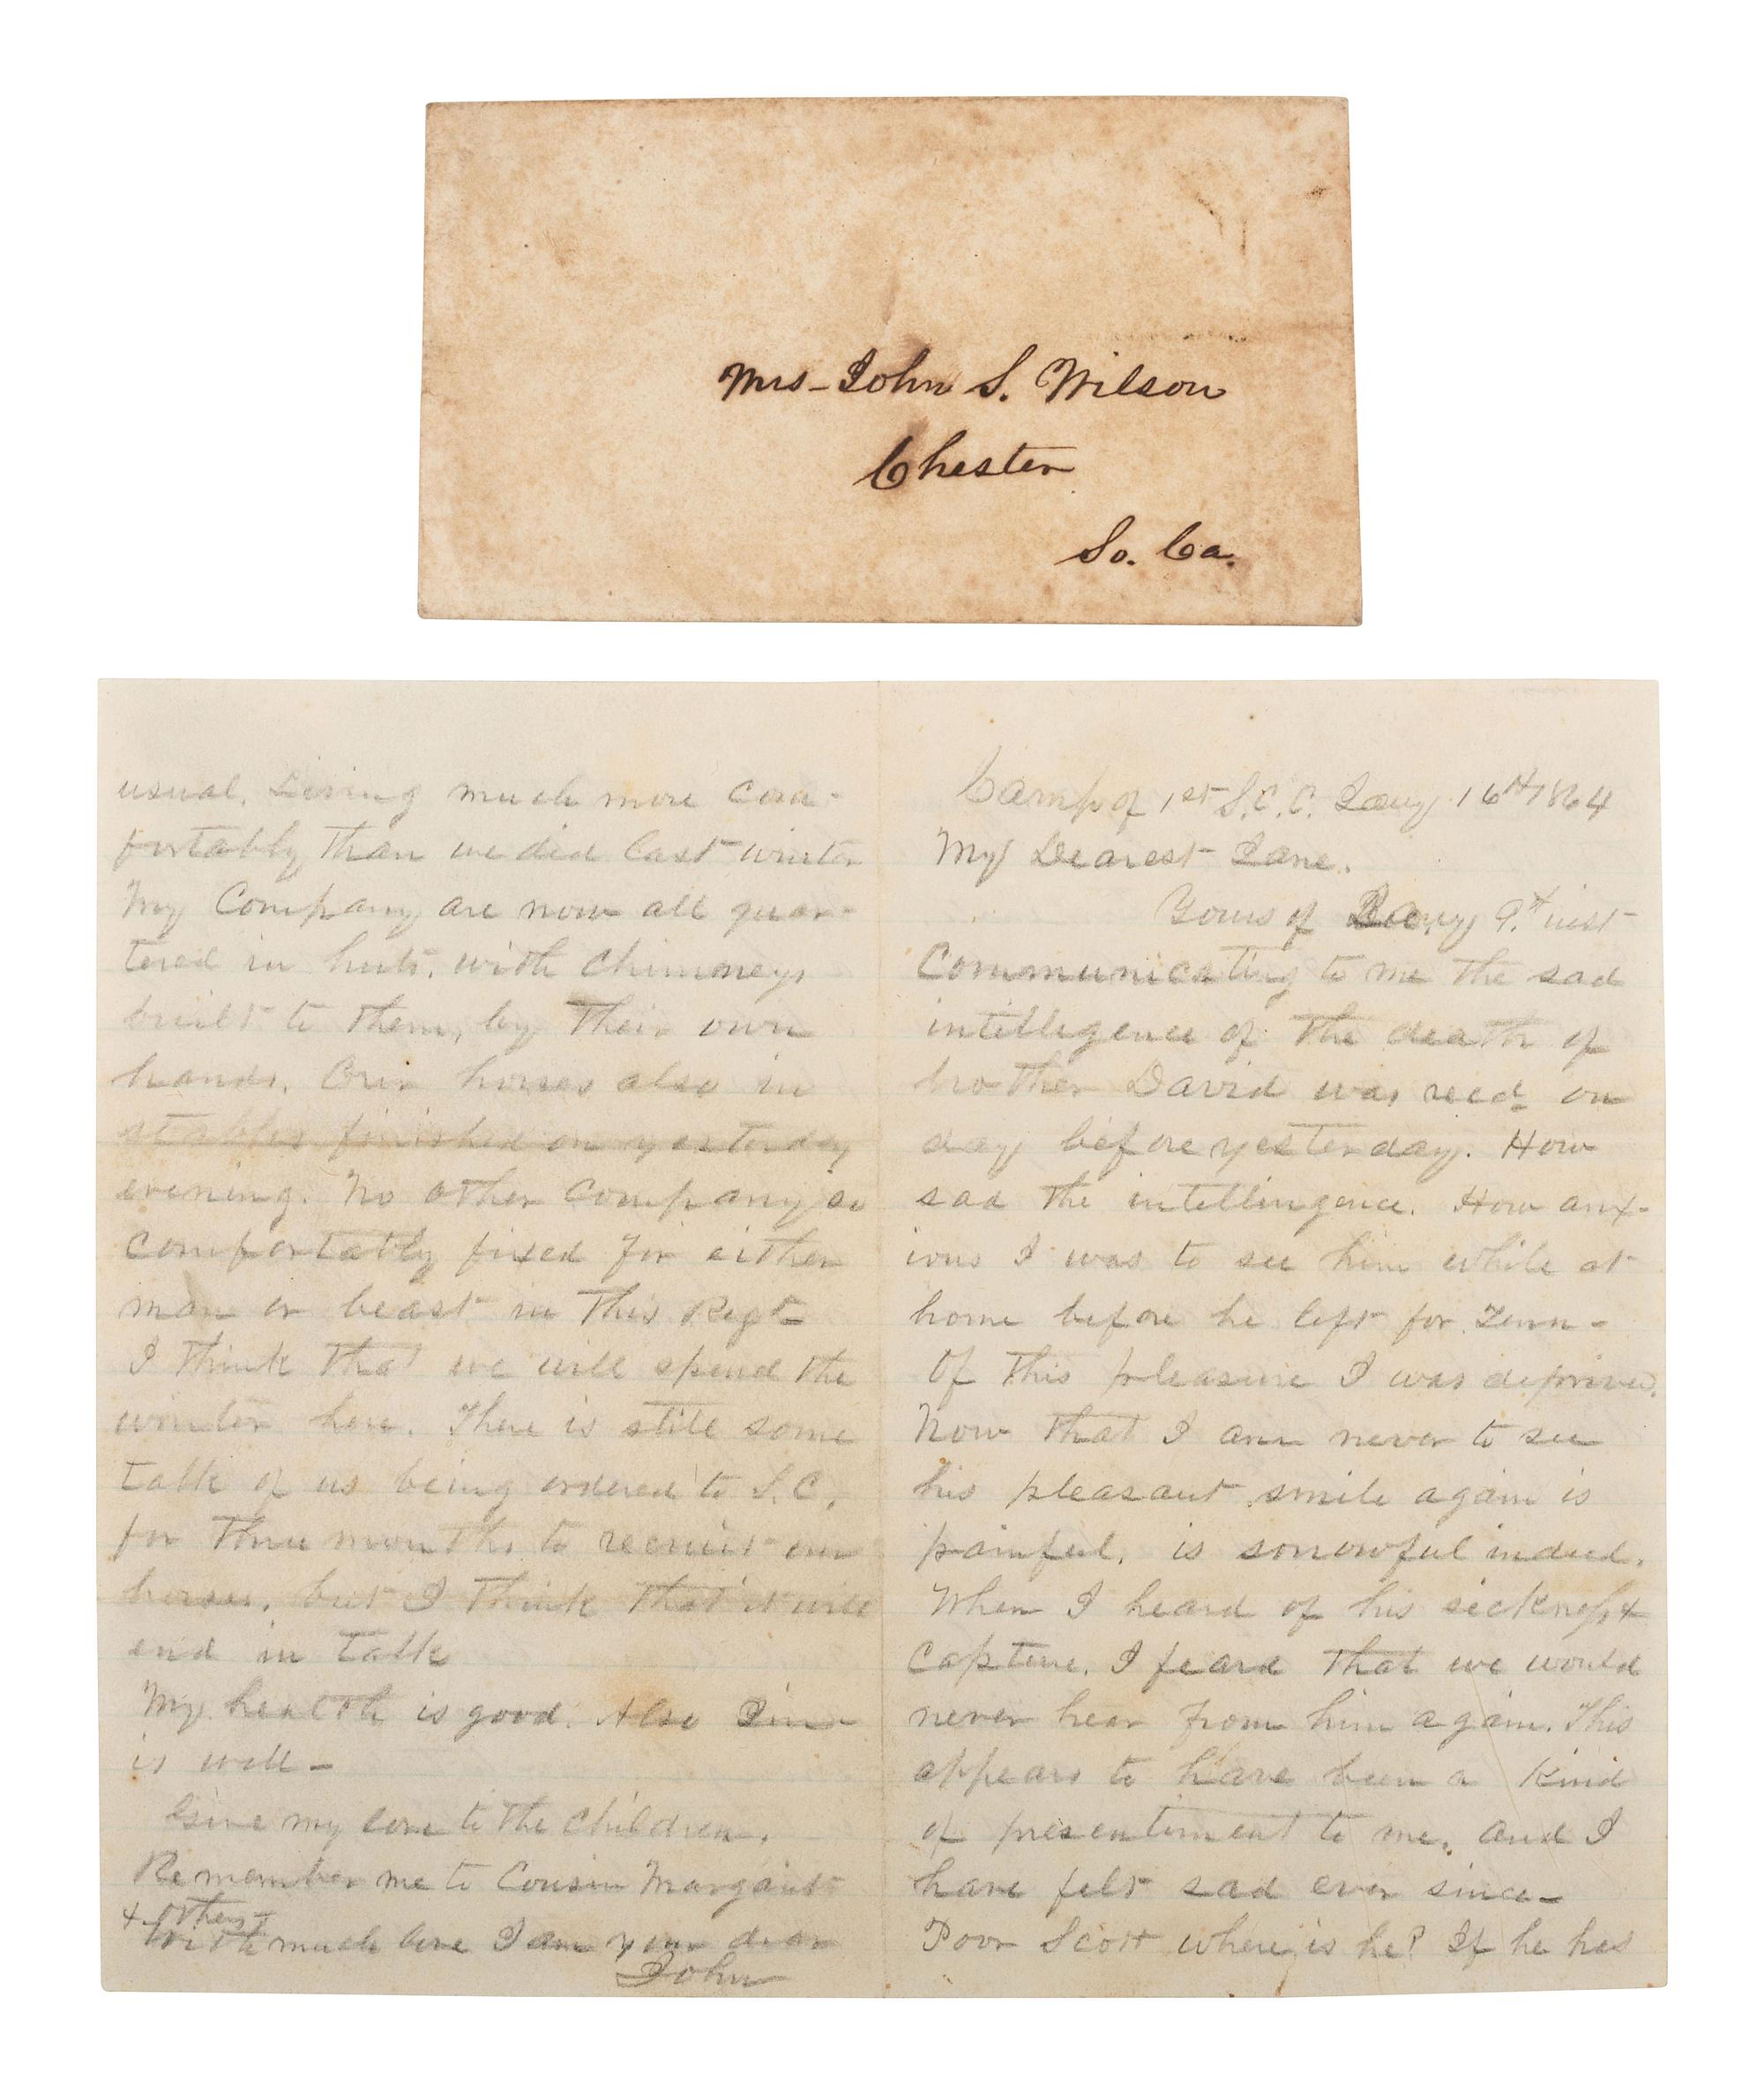 Mrs - John S. Wilson
Chester
So. Ca.
Camp of 1st S.C.C. Jany 16th 1864
My Dearest Jane.
Yours of Jany 9th inst
Communicating to me the sad
intelligence of the death of
brother David was recd on
day before yesterday. How
sad the intellingence. How anx-
ious I was to see him while at
home before he left for Tenn-
Of this pleasure I was deprived.
Now that I am never to see
his pleasant smile again is
painful, is sorrowful indeed.
When I heard of his sickness &
Capture. I feard that we would
never hear from him again. This
appears to have been a kind
of presentiment to me. and I
have felt sad ever since -
Poor Scott where is he? If he has
usual. Living much more com-
fortably than we did last winter
My Company are now all quar-
tered in huts, with chimneys
built to them, by their own
hands. Our horses also in
stables finished on yesterday
evening. No other Company so
comfortably fixed for either
man or beast in this Regt -
I think that we will spend the
winter here. There is still some
talk of us being ordered to S.C.
for three months to recruit our
horses. but I think that it will
end in talk
My health is good. Also Jim
is well -
Give my love to the children.
Remember me to Cousin Margaret
& others -
With much love I am your dear
John